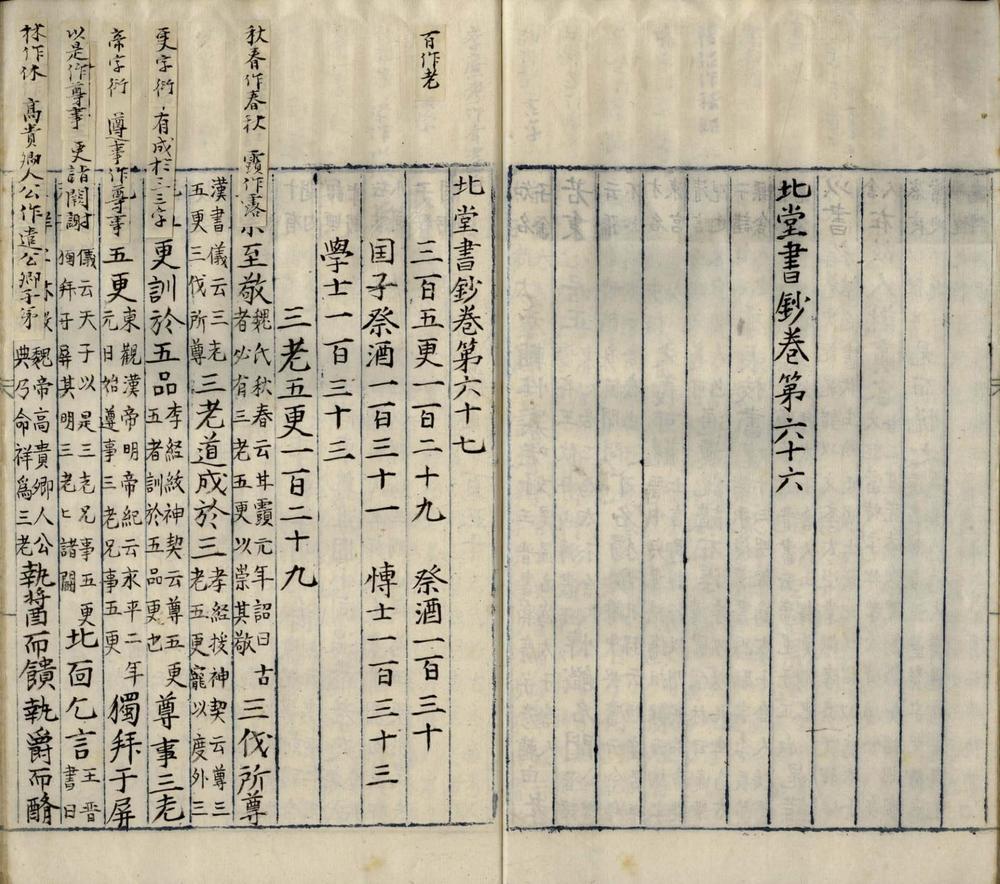 北堂書鈔卷第六十六
北堂書鈔卷第六十七
百作老
三百五更一百二十九 祭酒一百三十
国子祭酒一百三十一 愽士一百三十三
學士一百三十三
三老五更一百二十九
秋春作春秋
小至敬 魏氏秋春云甘霣元年詔曰古
者必有三老五更以崇其敬 三伐所尊
漢書儀云三老
五更三伐所尊 三老道成於三 孝經援神契云尊三
老五更寵以度外三
更字衍 有成於三三字
更訓於五品 李經紋神契云尊五更
五者訓於五品更也 尊事三老
帝字衍 遵事作尊事
五更 東觀漢帝明帝紀云永平二年
元日始遵事三老兄事五更 獨拜于屏
以是作尊事 更詣闕謝
儀云天子以是三老兄事五更
獨拜于屏其明三老匕諸闕 北面乞言 王晋
書曰
林作休 高貴卿人公作
魏帝高貴卿人公
典乃命祥爲三老 執醬而饋執爵而酳